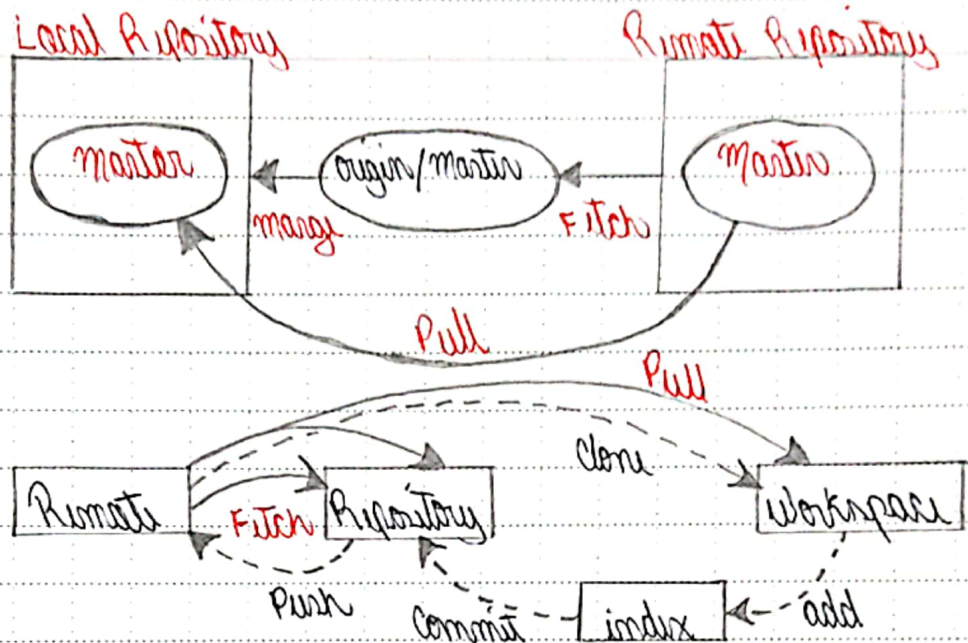 Local Repository
Remote Repository
Master
origin/Master
Master
marge
Fetch
Pull
Pull
clone
Remote
Fetch
Repository
Workspace
Push
commit
index
add